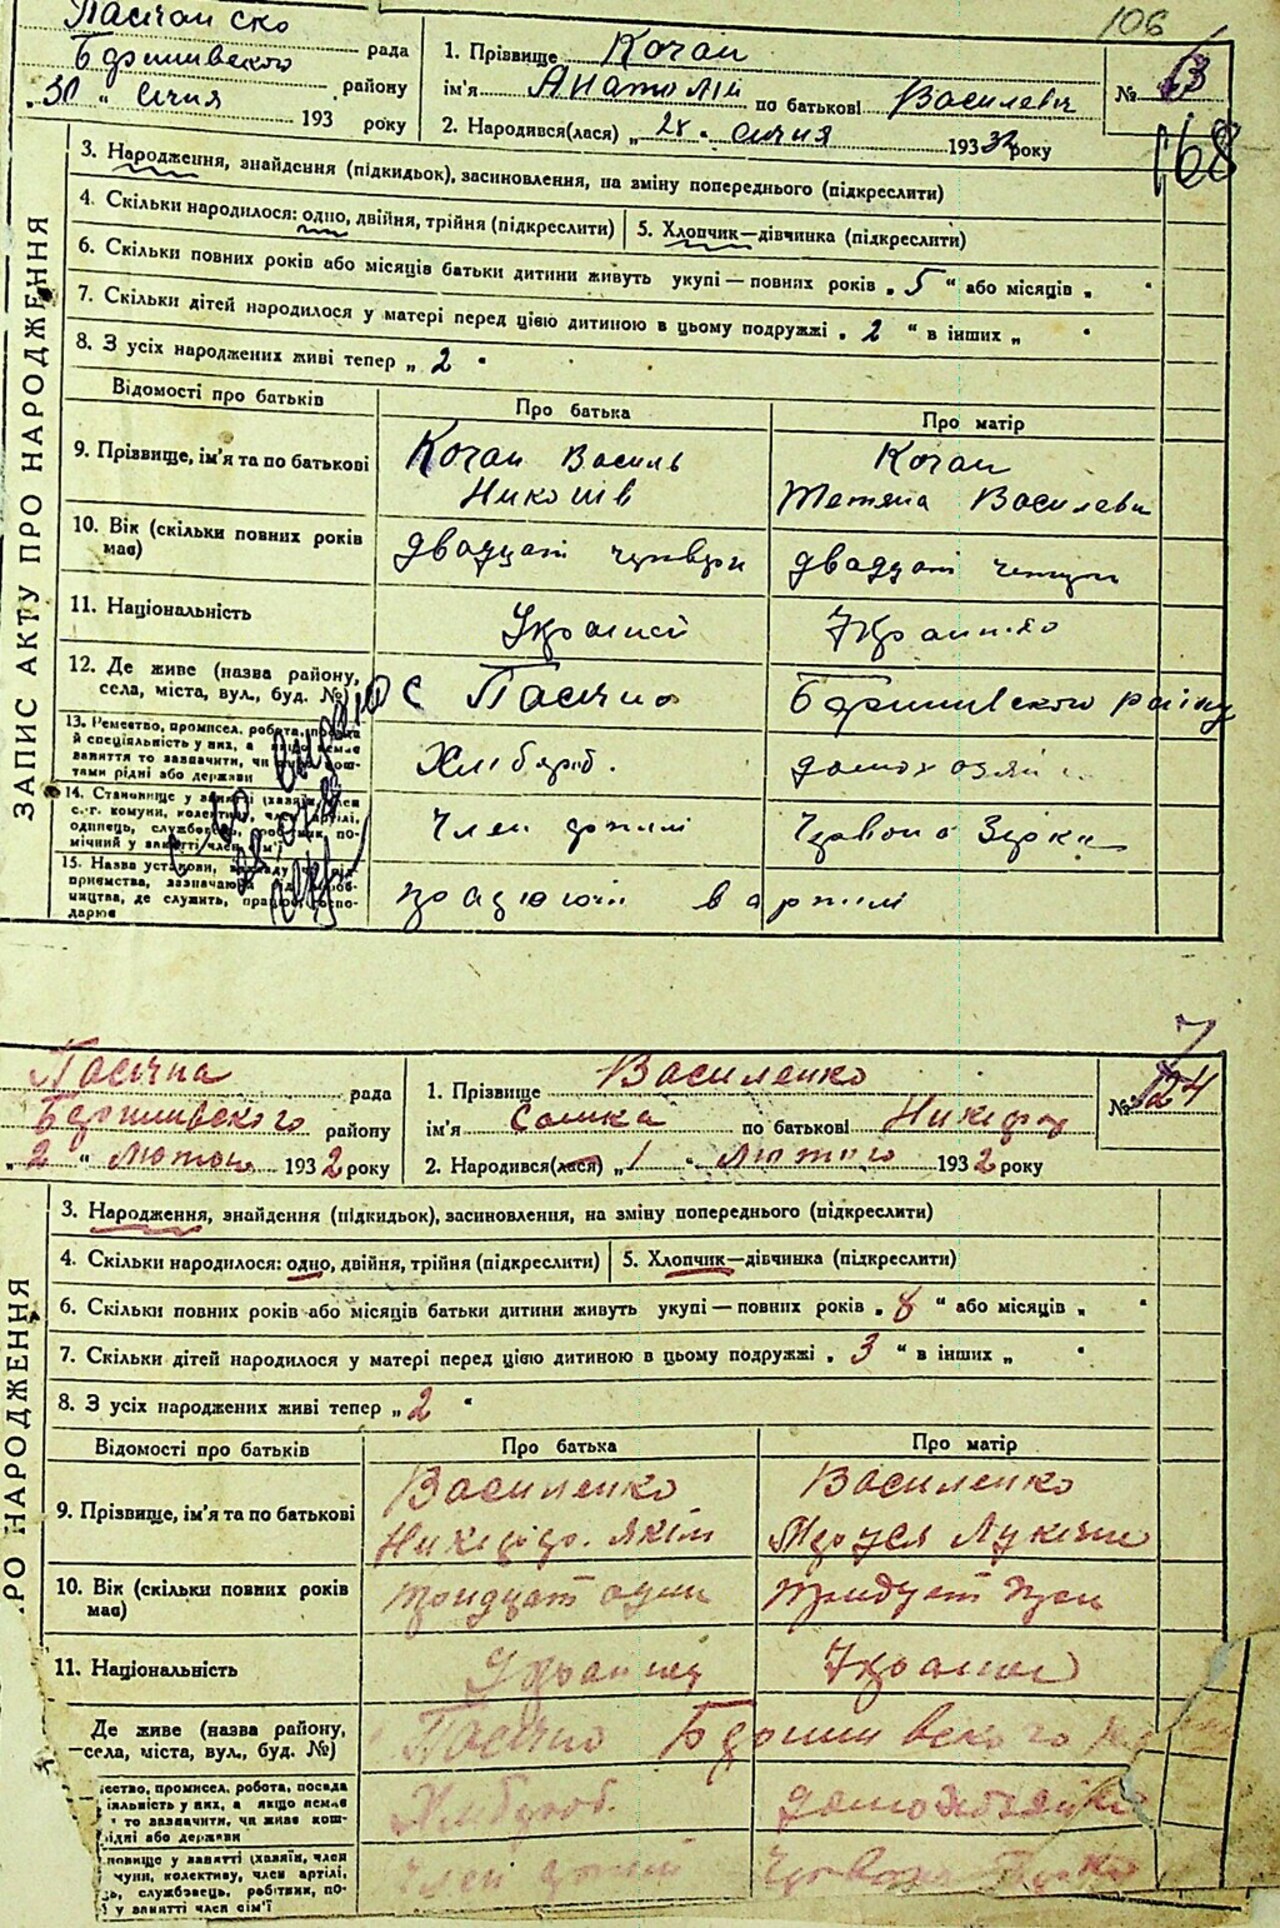 106
Пасічанско
рада
Баришивского
району
„30 “ січня 193 року
1. Прізвище Кочан
ім'я Анатолій по батькові Василевич
2. Народився(лася) „ 28 “ січня 1932 року
№ 6
168
ЗАПИС АКТУ ПРО НАРОДЖЕННЯ
3. Народження, знайдення (підкидьок), засиновлення, на зміну попереднього (підкреслити)
4. Скільки народилося: одно, двійня, трійня (підкреслити)
5. Хлопчик—дівчинка (підкреслити)
6. Скільки повних років або місяців батьки дитини живуть укупі — повних років „ 5 “ або місяців „ “
7. Скільки дітей народилося у матері перед цією дитиною в цьому подружжі „ 2 “ в інших „ “
8. З усіх народжених живі тепер „ 2 “
Відомості про батьків
Про батька
Про матір
9. Прізвище, ім'я та по батькові
Кочан Василь
Кочан
Тетяна Василевн
10. Вік (скільки повних років
має)
двадцать чотири
двадцать чотири
11. Національність
Українец
Українка
12. Де живе (назва району,
села, міста, вул., буд. №)
с Пасічно
Баришивского району
13. Ремество, промисел, робота, посада
й спеціяльність у них, а якщо немає
заняття то зазначити, чи живе кош-
тами рідні або держави
Хлібороб.
домохозяй
14. Становище у занятті (хазяїн, член
с.-г. комуни, колективу, член артілі,
одинець, службовець, робітник, по-
мічний у занятті член сім'ї
Член артілі
Червона Зірка
15. Назва установи, закладу чи під-
приємства, зазначаючи
ництва, де служить, працює
дарює
працюючи в артілі
Пасічна
рада
Баришивского
району
„2 “ Лютого 1932 року
1. Прізвище Василенко
ім'я Сашка по батькові Никифор
2. Народився(лася) „ 1 “ Лютого 1932 року
7
№ 24
РО НАРОДЖЕННЯ
3. Народження, знайдення (підкидьок), засиновлення, на зміну попереднього (підкреслити)
4. Скільки народилося: одно, двійня, трійня (підкреслити)
5. Хлопчик—дівчинка (підкреслити)
6. Скільки повних років або місяців батьки дитини живуть укупі — повних років „ 8 “ або місяців „ “
7. Скільки дітей народилося у матері перед цією дитиною в цьому подружжі „ 3 “ в інших „ “
8. З усіх народжених живі тепер „ 2 “
Відомості про батьків
Про батька
Про матір
9. Прізвище, ім'я та по батькові
Василенко
Никифор. Якім
Василенко
Лукична
10. Вік (скільки повних років
має)
тридцат один
тридцат
11. Національність
Українец
Україн
Де живе (назва району,
села, міста, вул., буд. №)
Пасічно Баришивского
ество, промисел, робота, посада
іяльність у них, а якщо немає
то зазначити, чи живе кош-
ідні або держави
Хлібороб.
домохозяйка
новище у занятті (хазяїн, член
чуни, колективу, член артілі,
ь, службовець, робітник, по-
у занятті член сім'ї
Член артілі
Червона Зірка